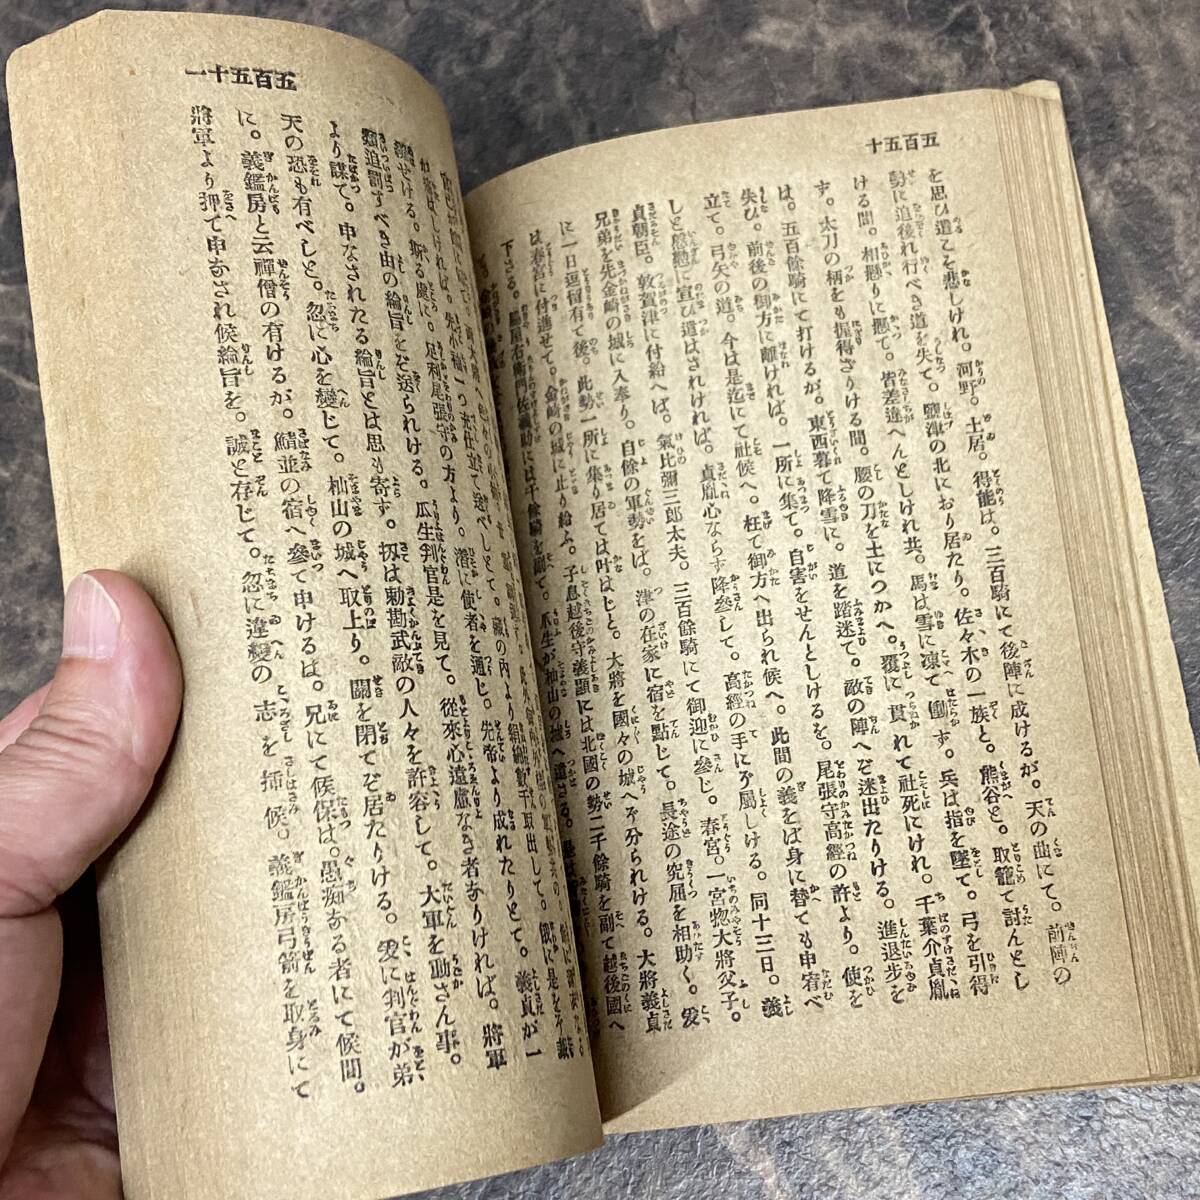 五百五十
を思ひ遣こそ悲しけれ。河野。土居。得能は。三百騎にて後陣に成けるが。天の曲にて。前陣の
勢に追後れ行べき道を失て。鹽津の北におり居たり。佐々木の一族と。熊谷と。取籠て討んとし
ける間。相懸りに懸て。皆差違へんとしけれ共。馬は雪に凍て働す。兵は指を墜て。弓を引得
ず。太刀の柄をも握得ざりける間。腰の刀を土につかへ。覆に貫れて社死にけれ。千葉介貞胤
は。五百餘騎にて打けるが。東西暮て降雪に。道を踏迷て。敵の陣へぞ迷出たりける。進退歩を
失ひ。前後の御方に離ければ。一所に集て。自害をせんとしけるを。尾張守高經の許より。使を
立て。弓矢の道。今は是迄にて社候へ。枉て御方へ出られ候へ。此間の義をば身に替ても申宥べ
しと慇懃に宣ひ遣はされければ。貞胤心ならず降參して。高經の手にぞ屬しける。同十三日。義
貞朝臣。敦賀津に付給へば。氣比彌三郎太夫。三百餘騎にて御迎に參じ。春宮。一宮惣大將父子。
兄弟を先金崎の城に入奉り。自餘の軍勢をば。津の在家に宿を點じて。長途の究屈を相助く。爰
に一日逗留有て後。此勢一所に集り居ては叶はじと。大將を國々の城へぞ分られける。大將義貞
は春宮に付進せて。金崎の城に止り給ふ。子息越後守義顯には北國の勢二千餘騎を副て越後國へ
下さる。脇屋右衛門佐義助には千餘騎を副て。瓜生が杣山の城へ遣さる。
五百五十一
より謀て。申なされたる綸旨とは思も寄ず。扨は勅勘武敵の人々を許容して。大軍を動さん事。
天の恐も有べしと。忽に心を變じて。杣山の城へ取上り。關を閉てぞ居たりける。爰に判官が弟
に。義鑑房と云禪僧の有けるが。鯖並の宿へ參て申けるは。兄にて候保は。愚痴なる者にて候間。
將軍より押て申なされ候綸旨を。誠と存じて。忽に違變の志を揷候。義鑑房弓箭を取身にて